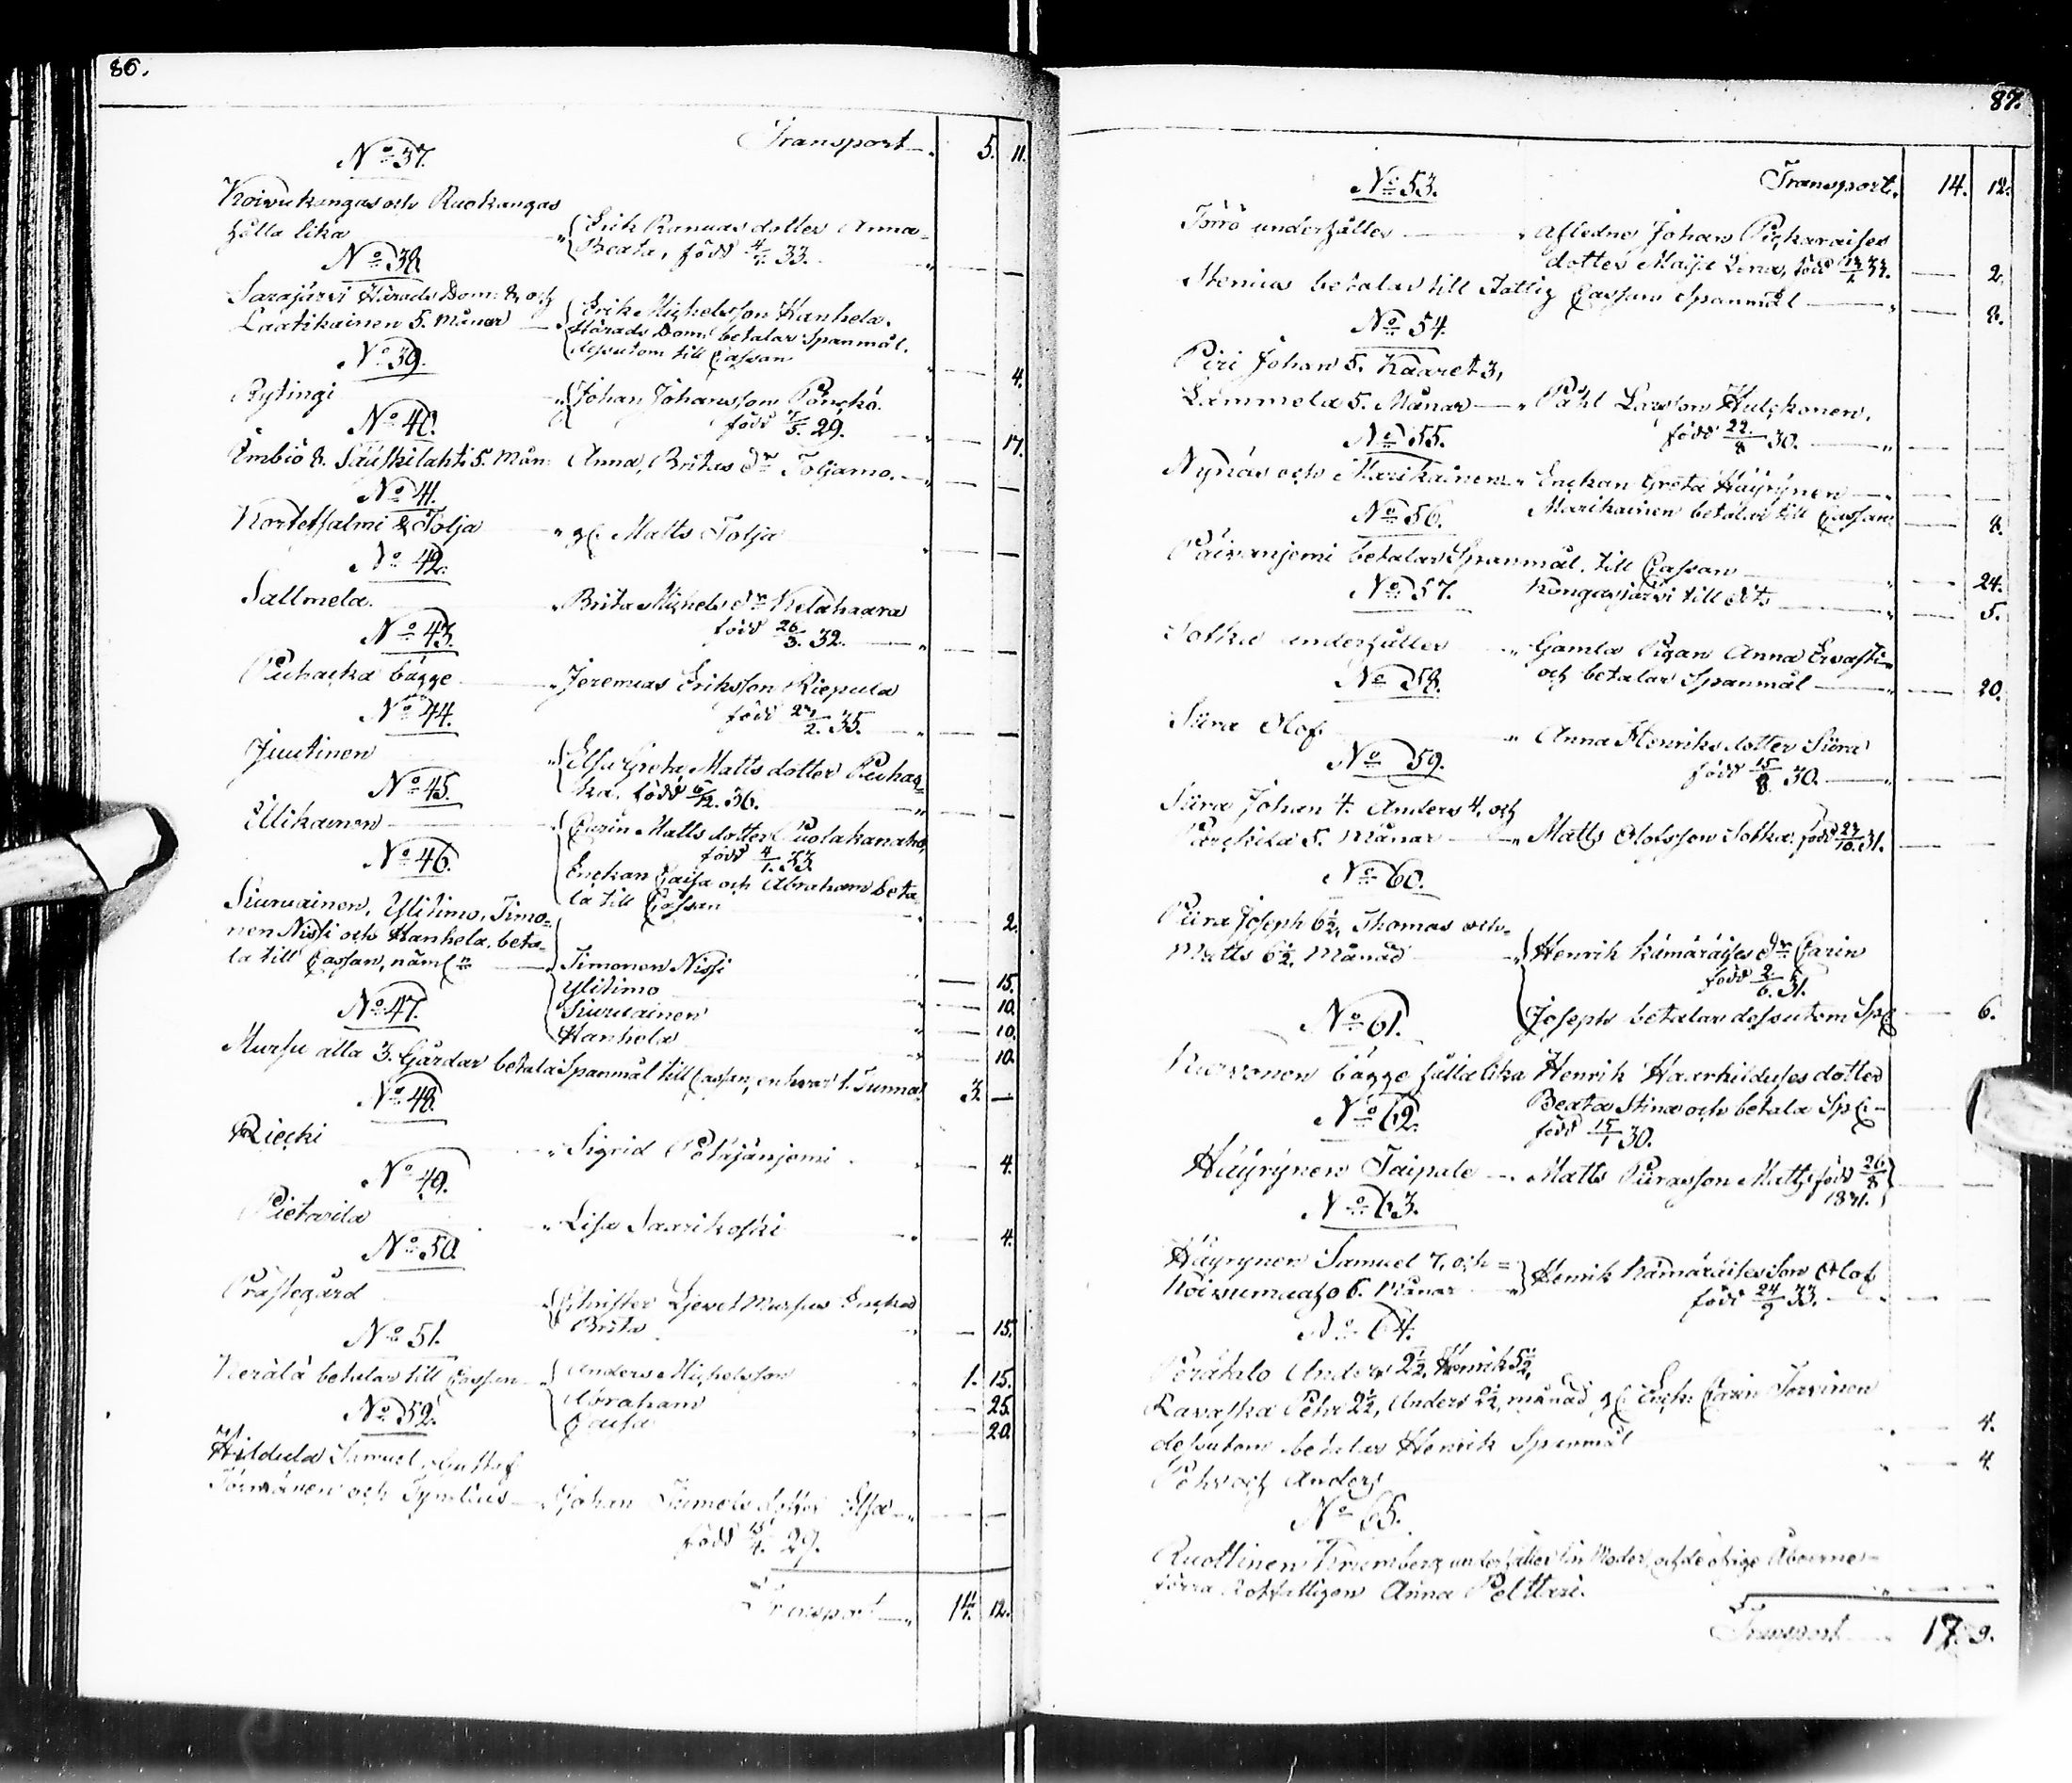 86.
Transport 5. 11.
No 37.
Koivukangas och Ruokangas
hålla lika " Erik Ranuas dotter Anna
Beata, född 4/1. 33. "
No 38.
Sarajärvi Härads Dom: 8, och
Laatikainen 5. Månar Erik Michelsson Hanhela.
Härads Dom: betalar Spanmål.
dessutom till Cassan " 4.
No 39.
Rytingi " Johan Johansson Pönckö.
född 7/5. 29. 17.
No 40.
Embiö 8. Säuskilahti 5. Mån: Anna, Britas dr Toljamo. "
No 41.
Kortessalmi & Tolja " gl. Matts Tolja "
No 42.
Sallmela. " Brita Michels dr Kelahaara
född 26/3. 32. "
No 43.
Puhacka bägge " Jeremias Eriksson Riepula
född 27/2. 35. "
No 44.
Juutinen " Elsa Greta Matts dotter Puhac-
ka. född 6/12. 36. "
No 45.
Ellikainen " Carin Matts dotter Puolakanaho,
född 4/1. 33.
Enckan Caisa och Abraham beta-
la till Cassan 2.
No 46.
Siuruainen, Ylitimo, Timo-
nen Nissi och Hanhela, beta-
la till Cassan, näml:n Timonen Nissi 15.
Ylitimo 10.
Siuruainen 10.
Hanhela 10.
No 47.
Mursu alla 3. Gårdar betala Spanmål till Cassan, enhvar 1. Tunna 3. —
No 48.
Riecki " Sigrid Petäjänjemi 4.
No 49.
Pietarila " Lisa Saarikoski 4.
No 50.
Prästegård Enckan
Brita 15.
No 51.
Kerälä betalar till Cassan Anders Michelsson 1. 15.
Abraham 25.
Caisa 20.
No 52.
Hildula Samuel, Gustaf
Törmänen och Johan dotter Elsa
född 15/4. 29.
Transport 14. 12.
87.
No 53. Transport. 14. 12.
Törrö underhåller " Afledne Johan Pickaraises
dotter Maija Lena, född 33. 2.
Stenius betalar till Fattig Cassan Spanmål 8.
No 54.
Piri Johan 5. Kaaret 3,
Lämmela 5. Månar " Påhl Larsson Hulckonen.
född 22/8 30. "
No 55.
Nynäs och Marikainen " Enckan Greta Häyrynen "
Marikainen betalar till Cassan 8.
No 56.
Päivänjemi betalar Spanmål. till Cassan 24.
No 57. Kongasjärvi till dito 5.
Sotka underhåller " Gamla Pigan Anna Ervasti
och betalar Spanmål 20.
No 58.
Siira Olof " Anna Henriks dotter Siira
född 15/8 30. "
No 59.
Siira Johan 4. Anders 4. och
5. Månar " Matts Olofsson Sotka. född 27/10. 31.
No 60.
Piira Joseph 6½, Thomas och
Matts 6½. Månad " Henrik Kämäräises dr Carin
född 2/6. 31.
Joseph betalar dessutom Spl 6.
No 61.
Kurvonen bägge hålla lika Henrik dotter
Beata Stina och betala Spl:
född 15/1 30.
No 62.
Häyrynen Taipale Matts Piirasson Matts, född 26/8
1831.
No 63.
Häyrynen Samuel 7, och
Koivumaa 6. Månar " Henrik Kämäräises son Olof
född 24/9 33.
No 64.
Perätalo Anders 2½, Henrik 5½,
Ravaska Petr 2½, Anders 2½, månad gl. Enck: Carin Torvinen
dessutom betalar Henrik Spanmål 4.
Pehr och Anders 4.
No 65.
Ruottinen underhåller sin Moder, och de öfrige Åboerne
Rotfattigen Anna Pelttari.
Transport 17. 9.